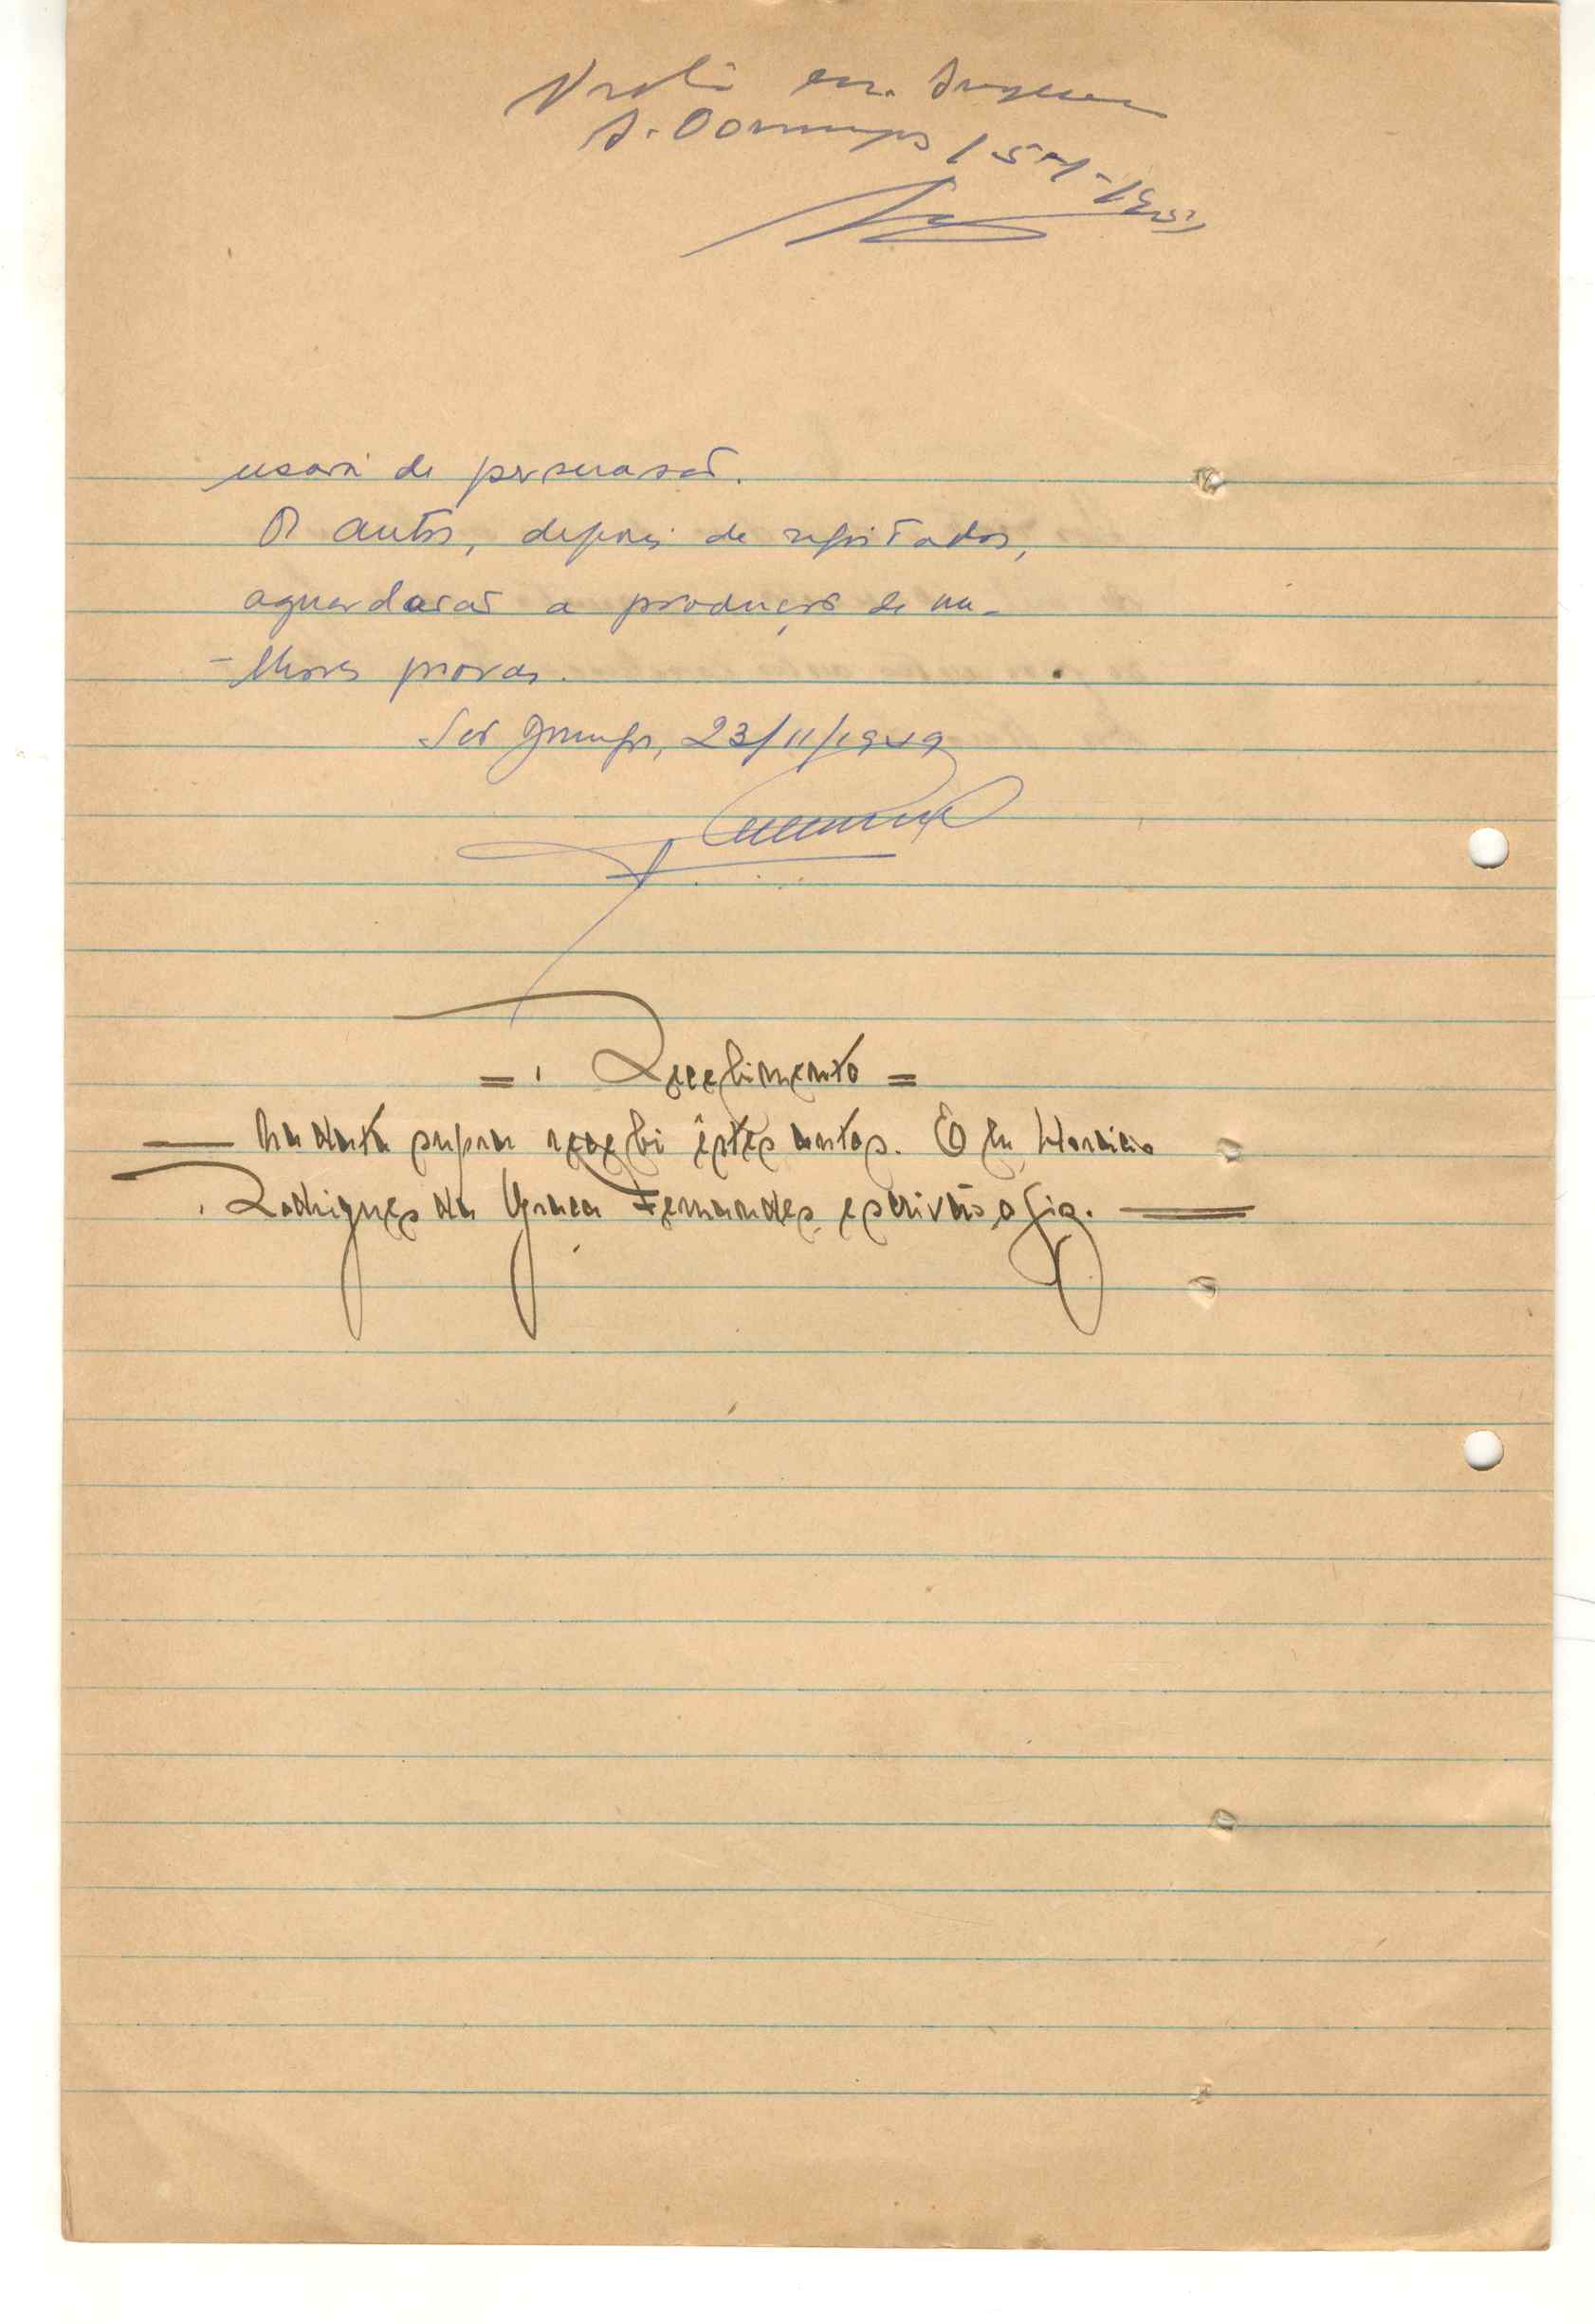 em
S. Domingos 15-1-195
usara de persuasão.
Os autos, depois de registados,
aguardarão a produção de me-
-lhores provas.
São Domingos, 23/11/1949
=. Recebimento =
— Na data supra recebi êstes autos. E eu Horácio
Rodrigues da Graça Fernandes, escrivão o fiz. —